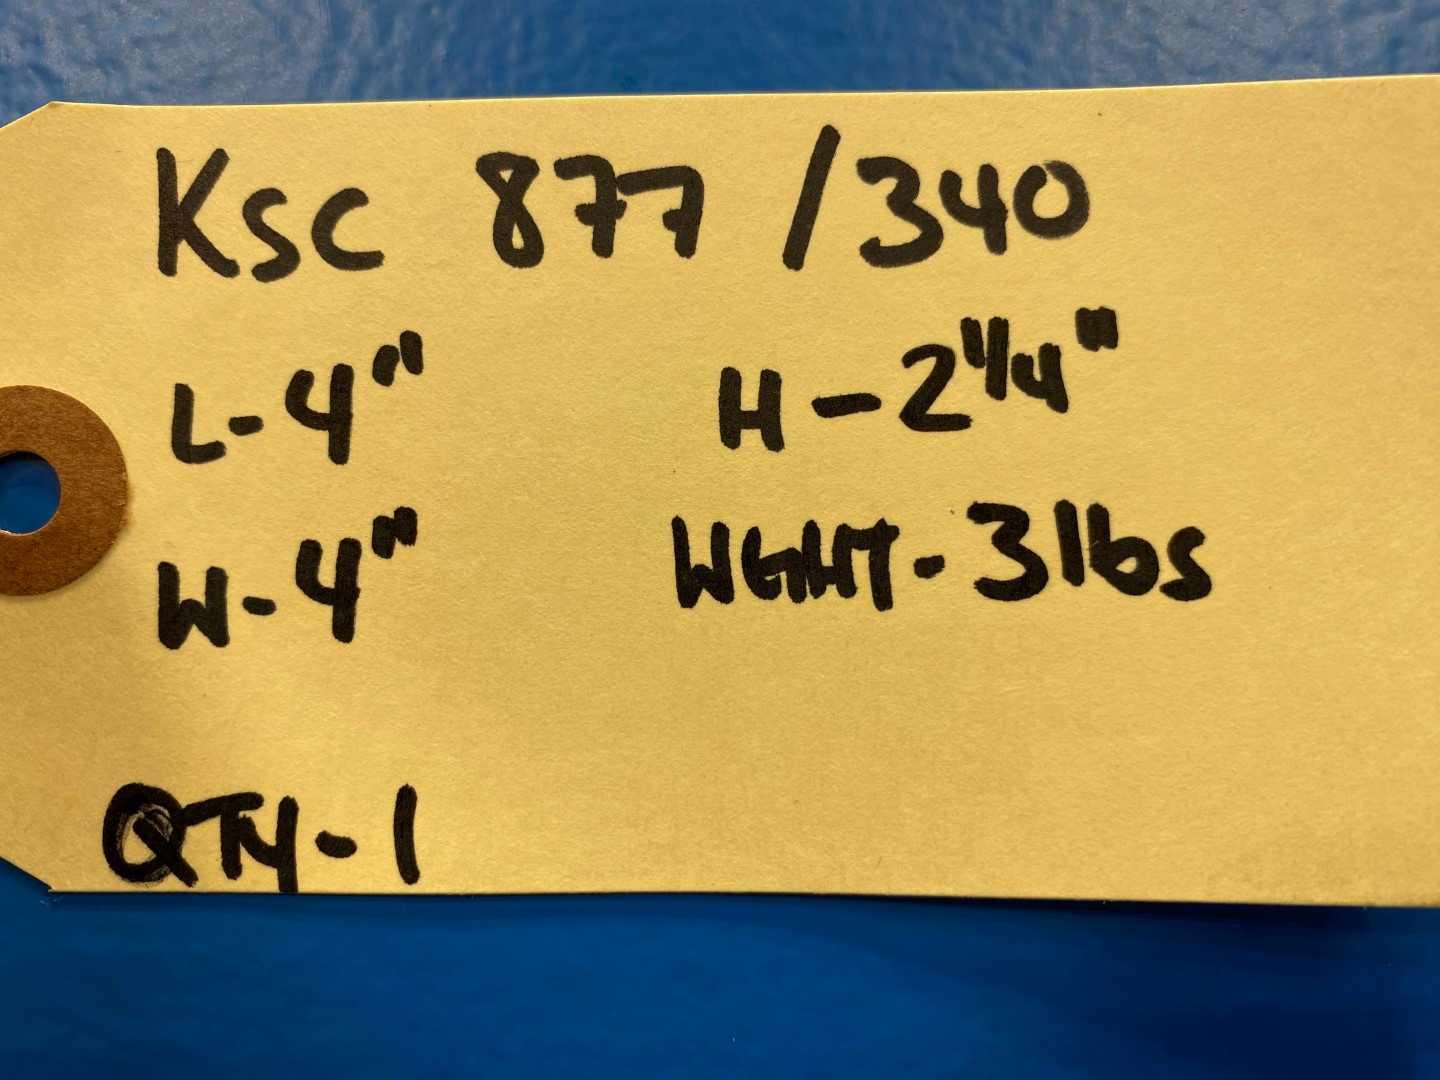 Ksc 877 / 340
L-4" H-2 1/4"
W-4" WGHT-3lbs
QTY-1